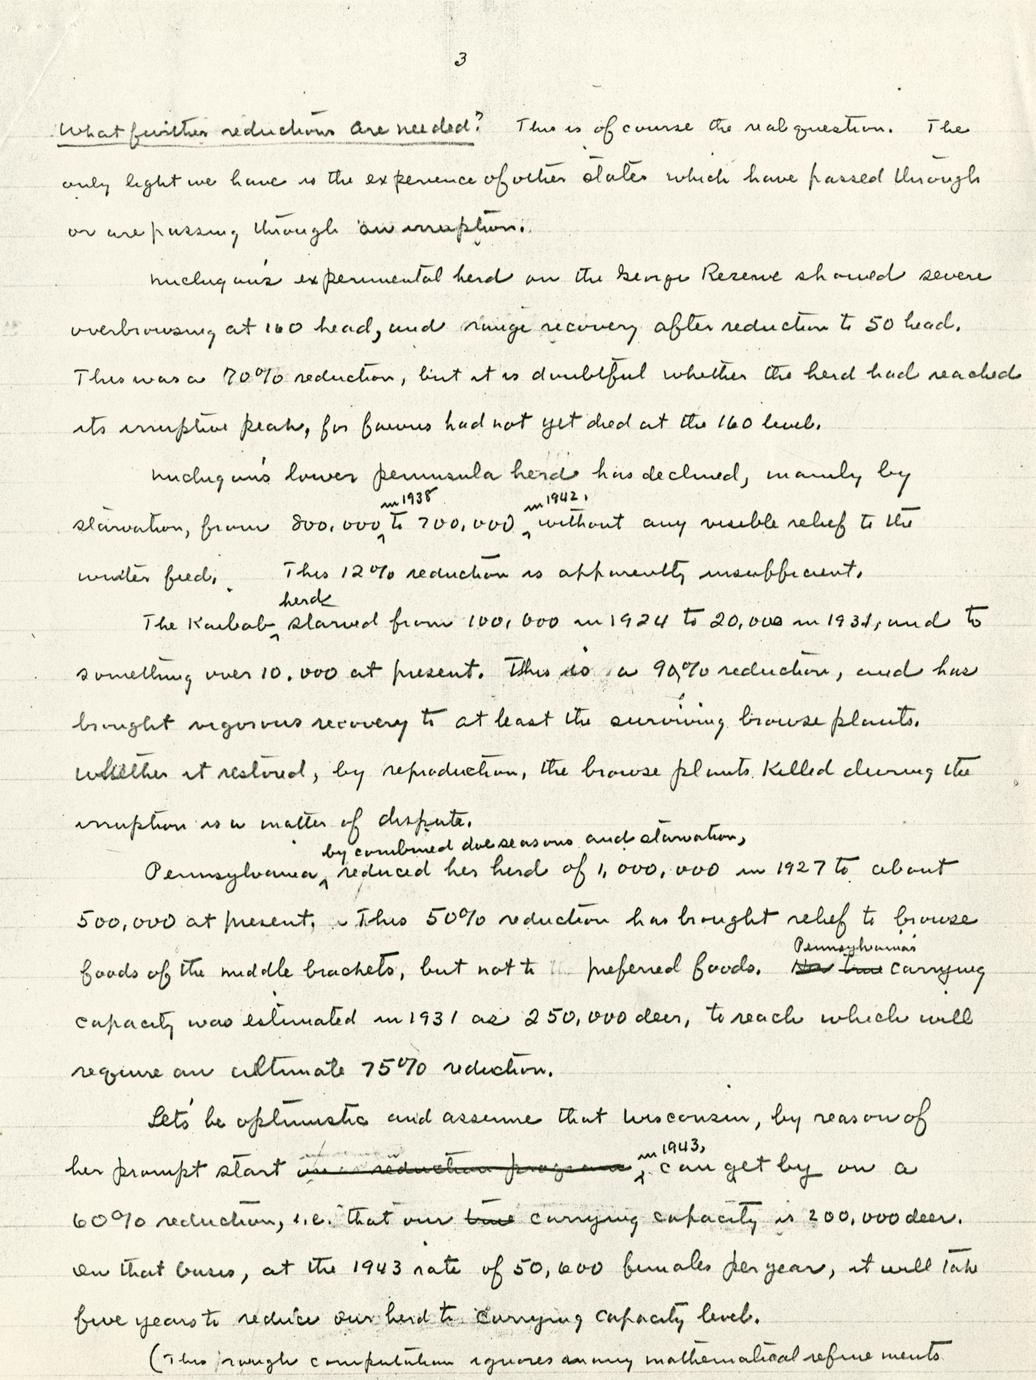 3
What further reductions are needed? This is of course the real question. The
only light we have is the experience of other states which have passed through
or are passing through an irruption.
Michigan's experimental herd on the George Reserve showed severe
overbrowsing at 160 head, and range recovery after reduction to 50 head.
This was a 70% reduction, but it is doubtful whether the herd had reached
its irruptive peak, for fawns had not yet died at the 160 level.
Michigan's lower peninsula herd has declined, mainly by
in 1938 in 1942,
starvation, from 800,000 to 700,000 without any visible relief to the
winter feed. This 12% reduction is apparently insufficient.
herd
The Kaibab starved from 100,000 in 1924 to 20,000 in 1931, and to
something over 10,000 at present. This is a 90% reduction, and has
brought vigorous recovery to at least the surviving browse plants.
Whether it restored, by reproduction, the browse plants killed during the
irruption is a matter of dispute.
by combined doe seasons and starvation,
Pennsylvania reduced her herd of 1,000,000 in 1927 to about
500,000 at present. This 50% reduction has brought relief to browse
foods of the middle brackets, but not to preferred foods. carrying
Pennsylvania's
capacity was estimated in 1931 as 250,000 deer, to reach which will
require an ultimate 75% reduction.
Let's be optimistic and assume that Wisconsin, by reason of
her prompt start on a reduction program in 1943, can get by on a
60% reduction, i.e. that our true carrying capacity is 200,000 deer.
On that basis, at the 1943 rate of 50,000 females per year, it will take
five years to reduce our herd to carrying capacity level.
(This rough computation ignores many mathematical refinements